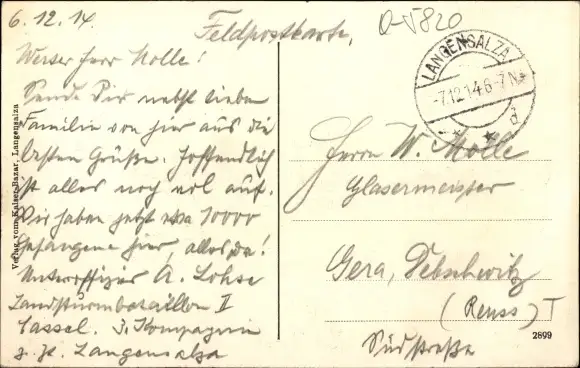 6.12.14.
Feldpostkarte.
O-5820
Werter Herr Molle!
Sende Dir nebst lieben
Familie von hier aus die
besten Grüße. Hoffendlich
ist alles noch wol auf.
Wir haben jetzt etwa 10000
Gefangene hier, alles da!
Unteroffizier A. Lohse
Landsturmbataillon II
Cassel. 3. Kompagnie
z. Zt. Langensalza
Verlag vom Kaiser-Bazar, Langensalza
LANGENSALZA
-7.12.14.6-7N.
* * d
Herrn W. Molle
Glasermeister
Gera, Debschwitz
(Reuss)
Südstraße
2899